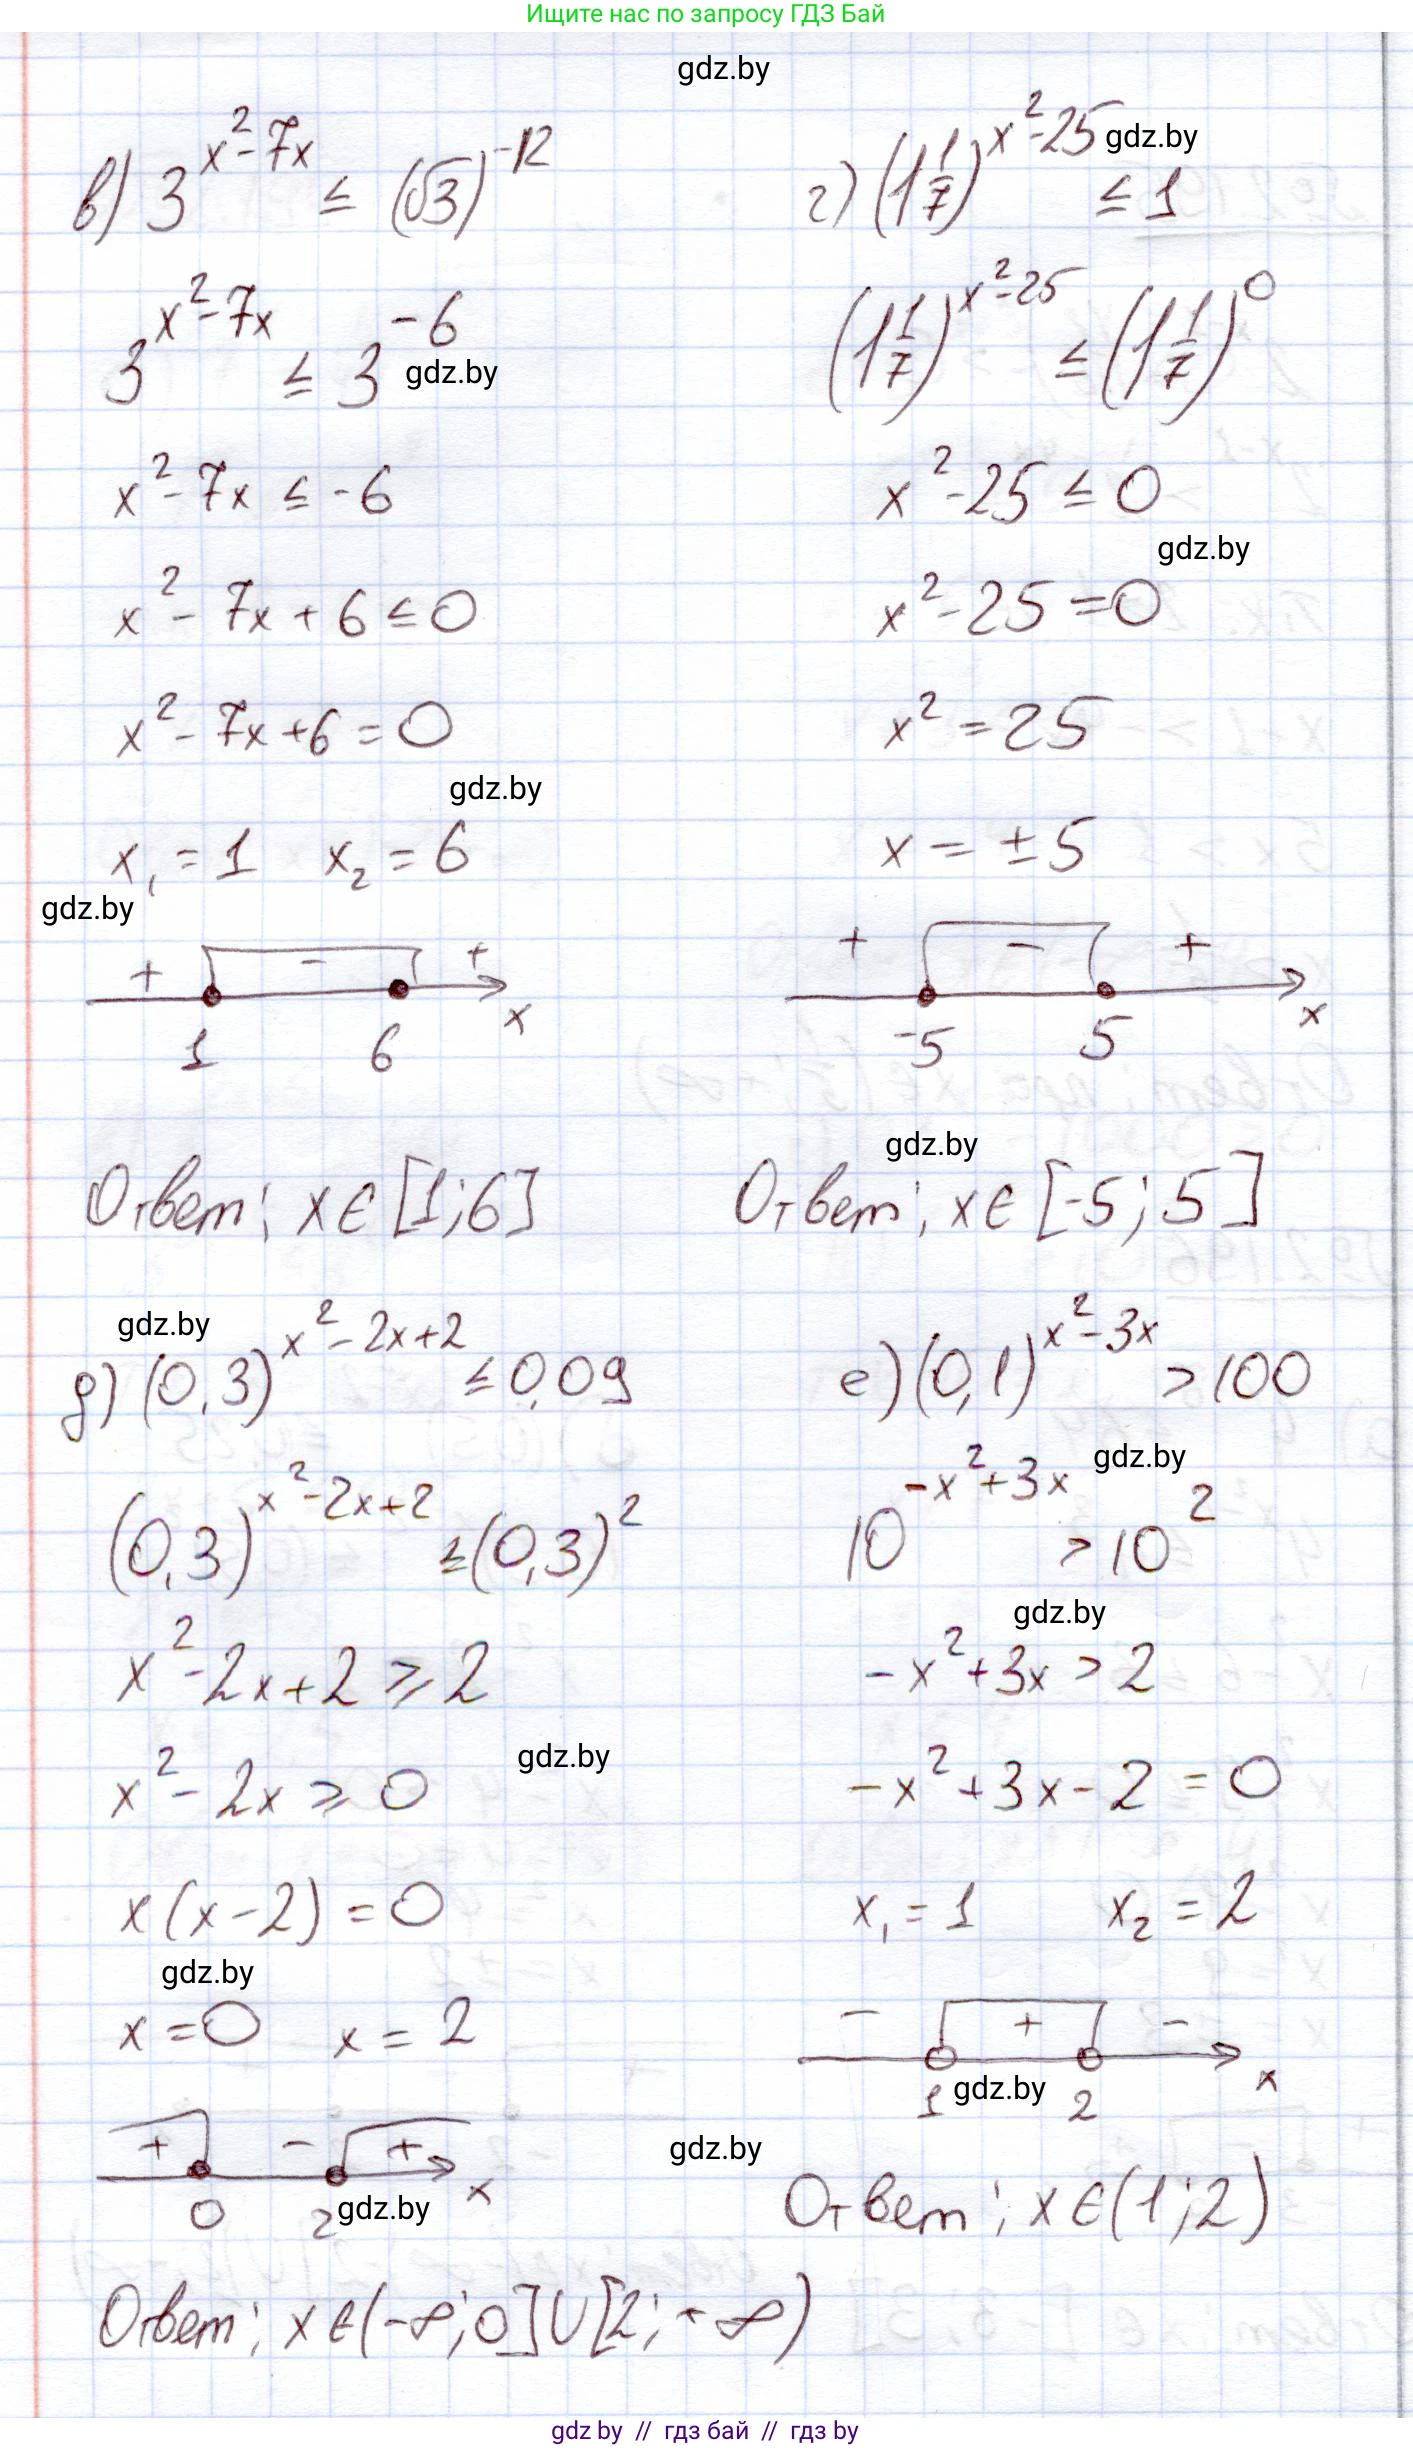 Ищите нас по запросу ГДЗ Бай
gdz.by
в) 3^(x²-7x) ≤ (√3)^(-12)
3^(x²-7x) ≤ 3^(-6)
gdz.by
x²-7x ≤ -6
x²-7x+6 ≤ 0
x²-7x+6 = 0
gdz.by
x₁ = 1 x₂ = 6
gdz.by
+ - +
1 6 x
Ответ: x ∈ [1;6]
г) (1 1/7)^(x²-25) ≤ 1
gdz.by
(1 1/7)^(x²-25) ≤ (1 1/7)^0
x²-25 ≤ 0
gdz.by
x²-25 = 0
x² = 25
x = ±5
+ - +
-5 5 x
gdz.by
Ответ: x ∈ [-5; 5]
gdz.by
д) (0,3)^(x²-2x+2) ≤ 0,09
(0,3)^(x²-2x+2) ≤ (0,3)²
x²-2x+2 ⩾ 2
gdz.by
x²-2x ⩾ 0
x(x-2) = 0
gdz.by
x = 0 x = 2
+ - +
0 2 x
gdz.by
Ответ: x ∈ (-∞;0] ∪ [2; +∞)
е) (0,1)^(x²-3x) > 100
gdz.by
10^(-x²+3x) > 10²
gdz.by
-x²+3x > 2
-x²+3x-2 = 0
x₁ = 1 x₂ = 2
- + -
1 2 x
gdz.by
gdz.by
Ответ: x ∈ (1;2)
gdz by // гдз бай // гдз by